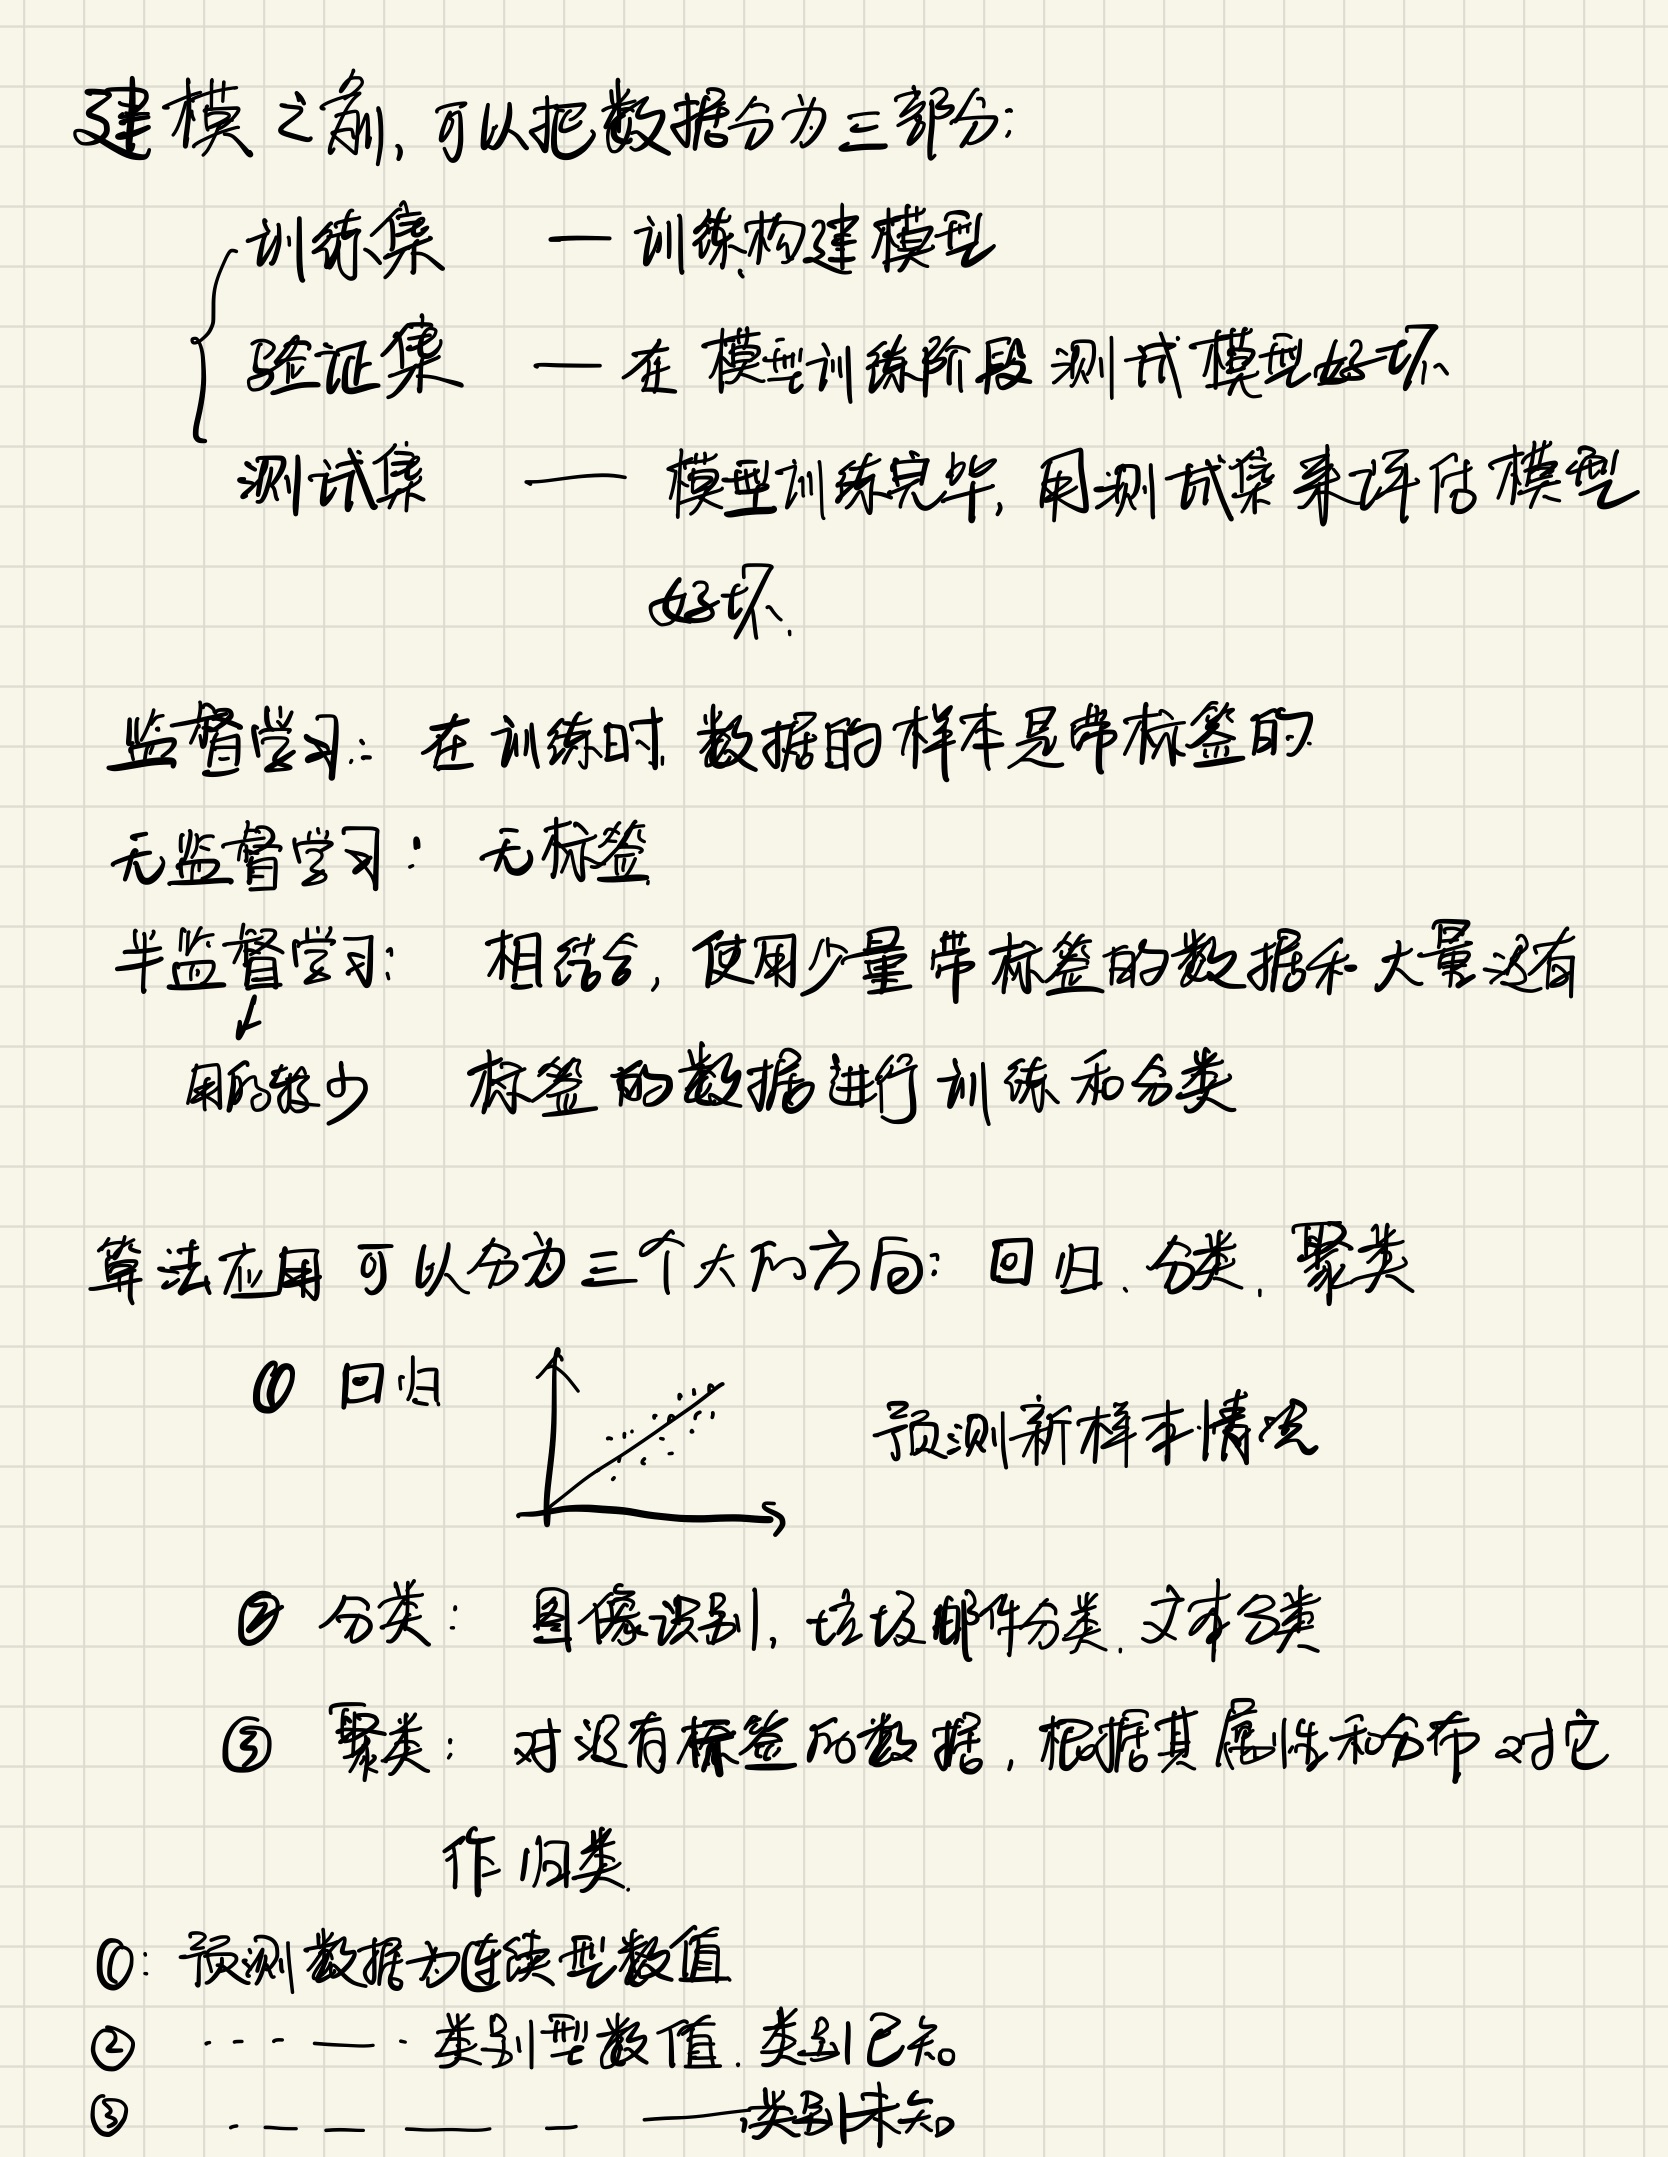 建模之前,可以把数据分为三部分:
训练集 — 训练构建模型
验证集 — 在模型训练阶段测试模型好坏
测试集 — 模型训练完毕,用测试集来评估模型
好坏.
监督学习: 在训练时 数据的样本是带标签的
无监督学习: 无标签
半监督学习: 相结合,使用少量带标签的数据和大量没有
用的较少 标签的数据进行训练和分类
算法应用可以分为三个大的方向: 回归、分类、聚类
① 回归 预测新样本情况
② 分类: 图像识别,垃圾邮件分类、文本分类
③ 聚类: 对没有标签的数据,根据其属性和分布对它
作归类.
①: 预测数据为连续型数值
② - - - — - 类别型数值、类别已知。
③ - — — — — — 类别未知。